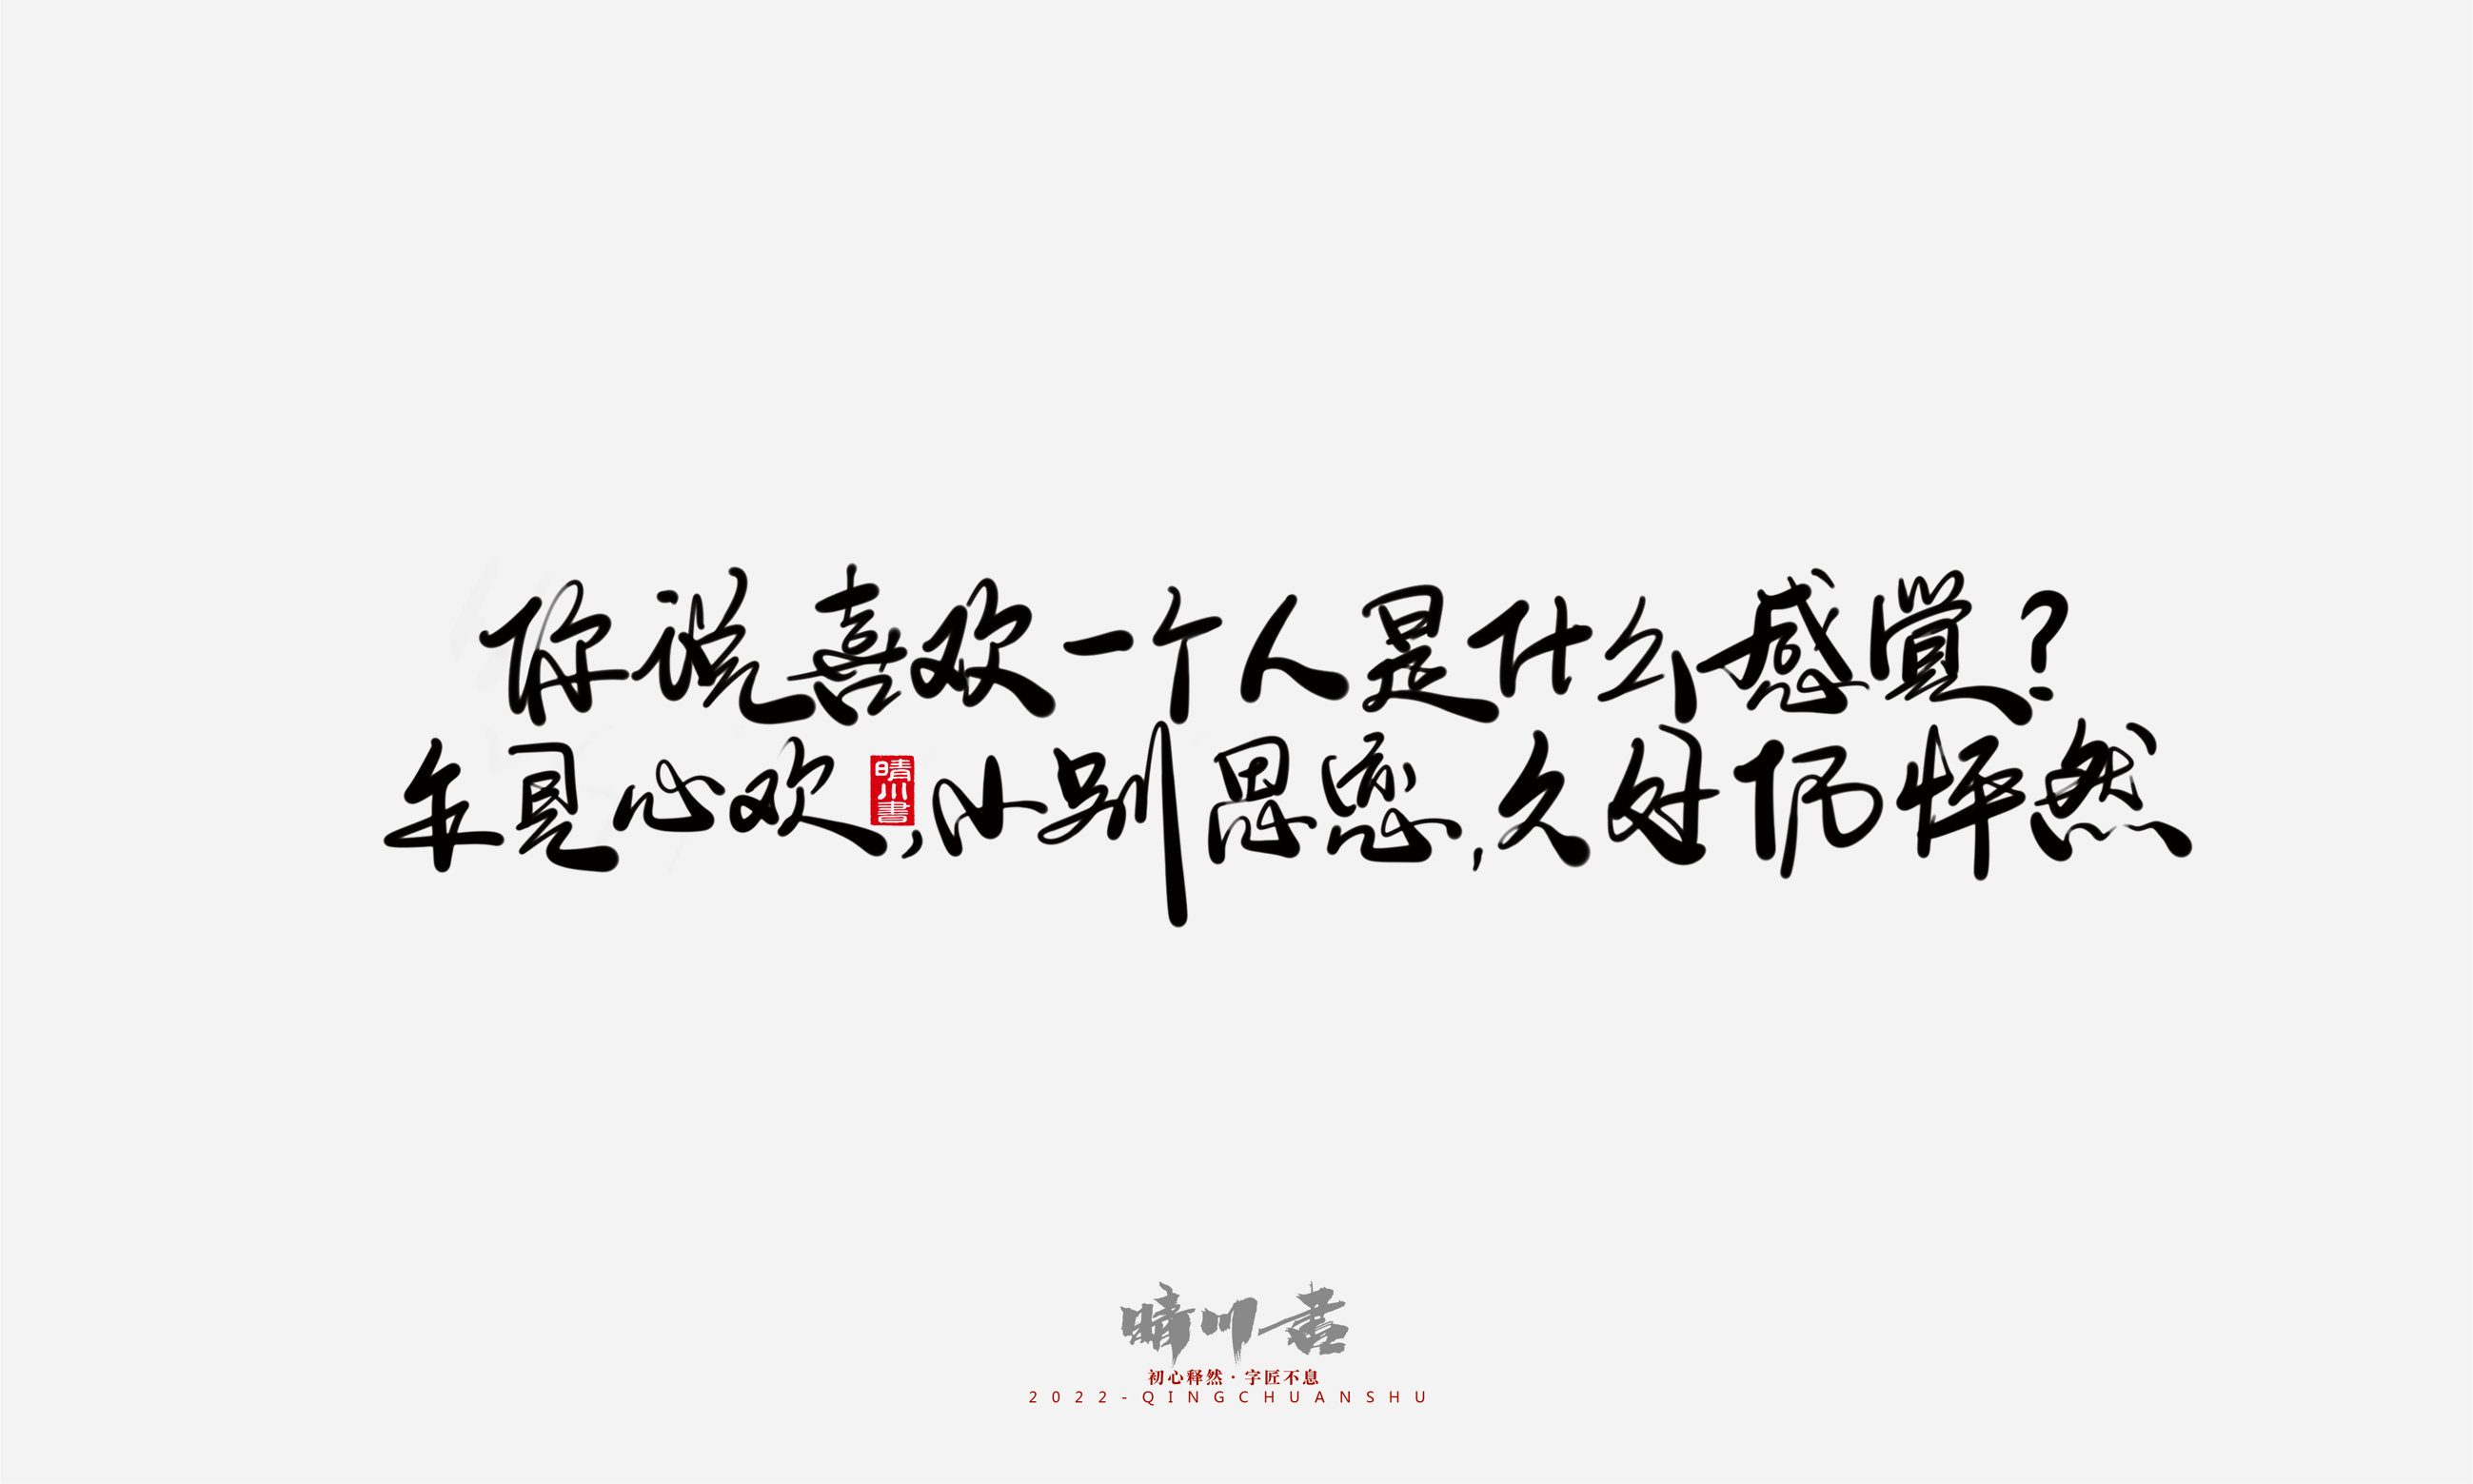 你说喜欢一个人是什么感覺?
乍见心欢,小别思恋,久处仍怦然
晴川書
晴川書
初心释然·字匠不息
2022-QINGCHUANSHU